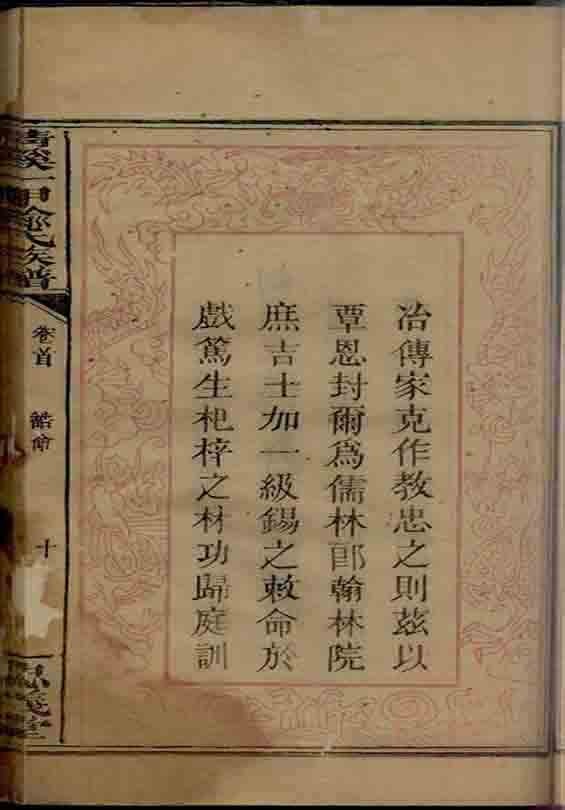 冶傳家克作教忠之則兹以
覃恩封爾爲儒林郎翰林院
庶吉士加一級錫之敕命於
戲篤生杞梓之材功歸庭訓
一甲
氏族譜
卷首
誥命
十
堂